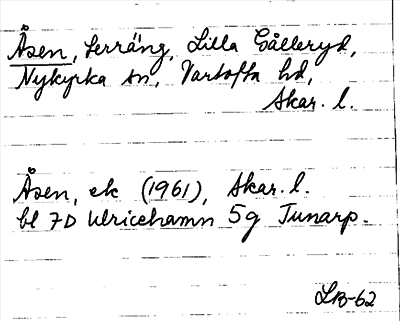 Åsen, terräng, Lilla Gålleryd,
Nykyrka sn, Vartofta hd,
Skar. l.
Åsen, ek (1961), Skar. l.
bl 7D Ulricehamn 5g Tunarp.
LB-62